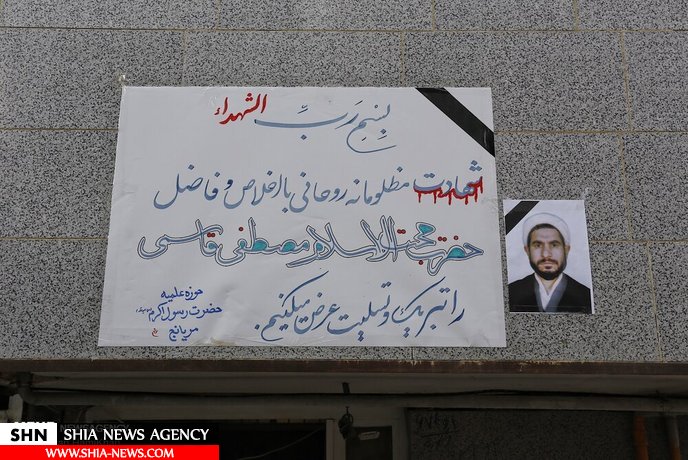 بِسْمِ رَبِّ الشهداء
شهادت مظلومانه روحانی بااخلاص و فاضل
حضرت حجت الاسلام مصطفی قاسمی
را تبریک و تسلیت عرض میکنیم.
حوزه علمیه
حضرت رسول اکرم
مریانج
SHN SHIA NEWS AGENCY
WWW.SHIA-NEWS.COM